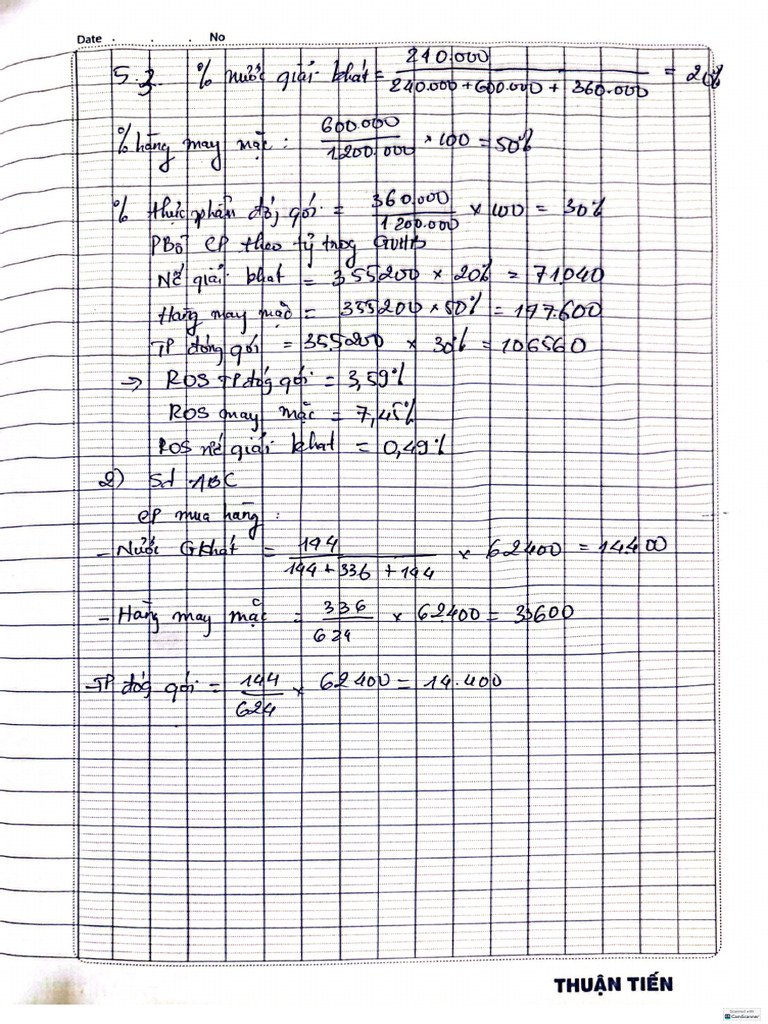 Date . . . No
5.3. % nước giải khát = 240.000 / 240.000 + 600.000 + 360.000 = 20%
% hàng may mặc : 600.000 / 1200.000 × 100 = 50%
% thực phẩm đóg gói = 360.000 / 1200.000 × 100 = 30%
PBổ CP theo tỷ trọg GVHB
Nc giải khat = 355200 × 20% = 71.040
Hàng may mặc = 355200 × 50% = 177.600
TP đóng gói = 355200 × 30% = 106560
→ ROS TP đóg gói = 3,59%
ROS may mặc = 7,45%
ROS nc giải khat = 0,49%
2) Sd ABC
CP mua hàng :
- Nước Gkhát = 144 / 144 + 336 + 144 × 62400 = 14400
- Hàng may mặc = 336 / 624 × 62400 = 33600
- TP đóg gói = 144 / 624 × 62400 = 14.400
THUẬN TIẾN
Scanned with
CamScanner